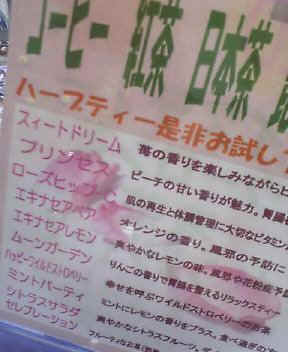 コーヒー 紅茶 日本茶
ハーブティー是非お試し
スィートドリーム 苺の香りを楽しみながら
プリンセス ピーチの甘い香りが魅力。胃腸
ローズヒップ 肌の再生と体調管理に大切なビタミン
エキナセアペア オレンジの香り。風邪の予防に
エキナセアレモン 爽やかなレモンの味。風邪や花粉症予
ムーンガーデン りんごの香りで胃腸を整えるリラックスティー
ハッピーワイルドストロベリー 幸せを呼ぶワイルドストロベリーのお茶
ミントパーティ ミントにレモンの香りをプラス。食べ過ぎ
シトラスサラダ 爽やかなシトラスフルーツ。
セレブレーション フルーティなお茶